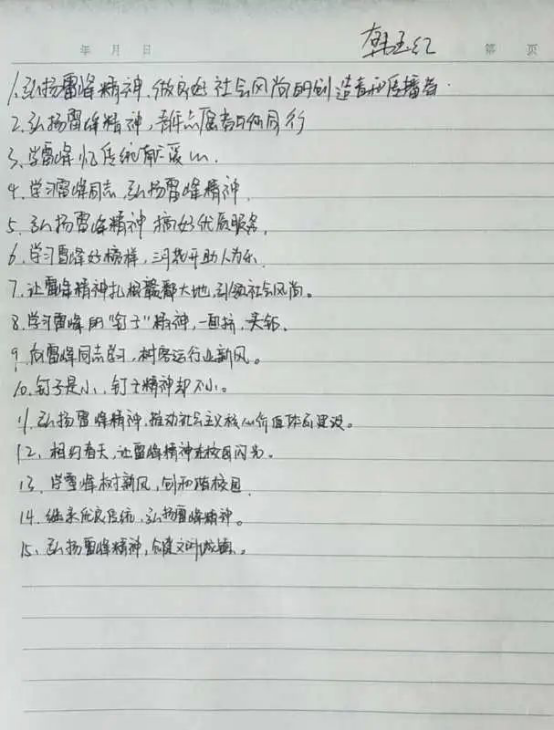 韩玉红
年 月 日 第 页
1. 弘扬雷锋精神,做良好社会风尚的创造者和传播者.
2. 弘扬雷锋精神,青年志愿者与你同行
3. 学雷锋 忆传统 献爱心.
4. 学习雷锋同志,弘扬雷锋精神.
5. 弘扬雷锋精神 搞好优质服务.
6. 学习雷锋好榜样,三月花开助人为乐.
7. 让雷锋精神扎根赣鄱大地,引领社会风尚。
8. 学习雷锋的“钉子”精神,一要挤,二要钻.
9. 向雷锋同志学习,树客运行业新风。
10. 钉子是小,钉子精神却不小。
11. 弘扬雷锋精神,推动社会主义核心价值体系建设。
12. 相约春天,让雷锋精神在校园闪光。
13. 学雷锋树新风,创和谐校园.
14. 继承优良传统,弘扬雷锋精神。
15. 弘扬雷锋精神,创建文明城镇。